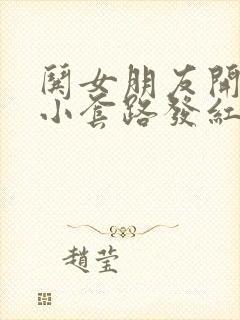 鬨女朋友開
小套路發紅
趙莹